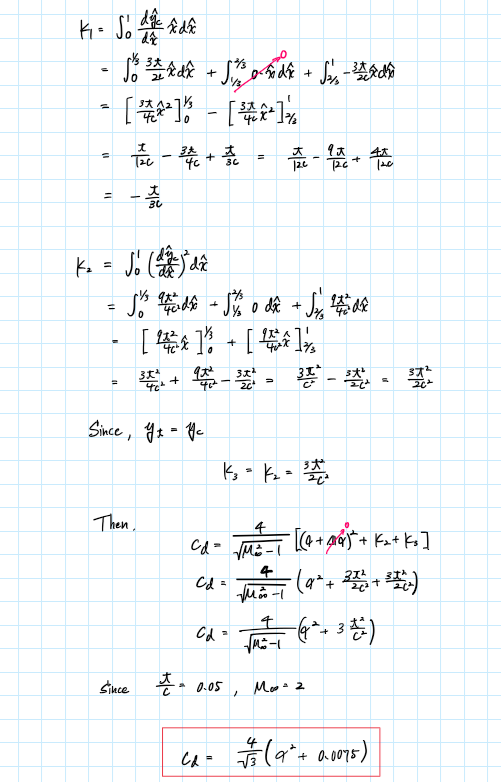 K₁ = ∫₀¹ dŷc/dx̂ x̂ dx̂
= ∫₀^{1/3} 3t/2c x̂ dx̂ + ∫_{1/3}^{2/3} 0·x̂ dx̂ 0 + ∫_{2/3}^1 -3t/2c x̂ dx̂
= [3t/4c x̂²]₀^{1/3} - [3t/4c x̂²]_{2/3}^1
= t/12c - 3t/4c + t/3c = t/12c - 9t/12c + 4t/12c
= - t/3c
K₂ = ∫₀¹ (dŷc/dx̂)² dx̂
= ∫₀^{1/3} 9t²/4c² dx̂ + ∫_{1/3}^{2/3} 0 dx̂ + ∫_{2/3}^1 9t²/4c² dx̂
= [9t²/4c² x̂]₀^{1/3} + [9t²/4c² x̂]_{2/3}^1
= 3t²/4c² + 9t²/4c² - 3t²/2c² = 3t²/c² - 3t²/2c² = 3t²/2c²
Since, yt = yc
K₃ = K₂ = 3t²/2c²
Then,
Cd = 4/√(M∞²-1) [(α + Δα)² 0 + K₂ + K₃]
Cd = 4/√(M∞²-1) (α² + 3t²/2c² + 3t²/2c²)
Cd = 4/√(M∞²-1) (α² + 3 t²/c²)
Since t/c = 0.05 , M∞ = 2
Cd = 4/√3 (α² + 0.0075)